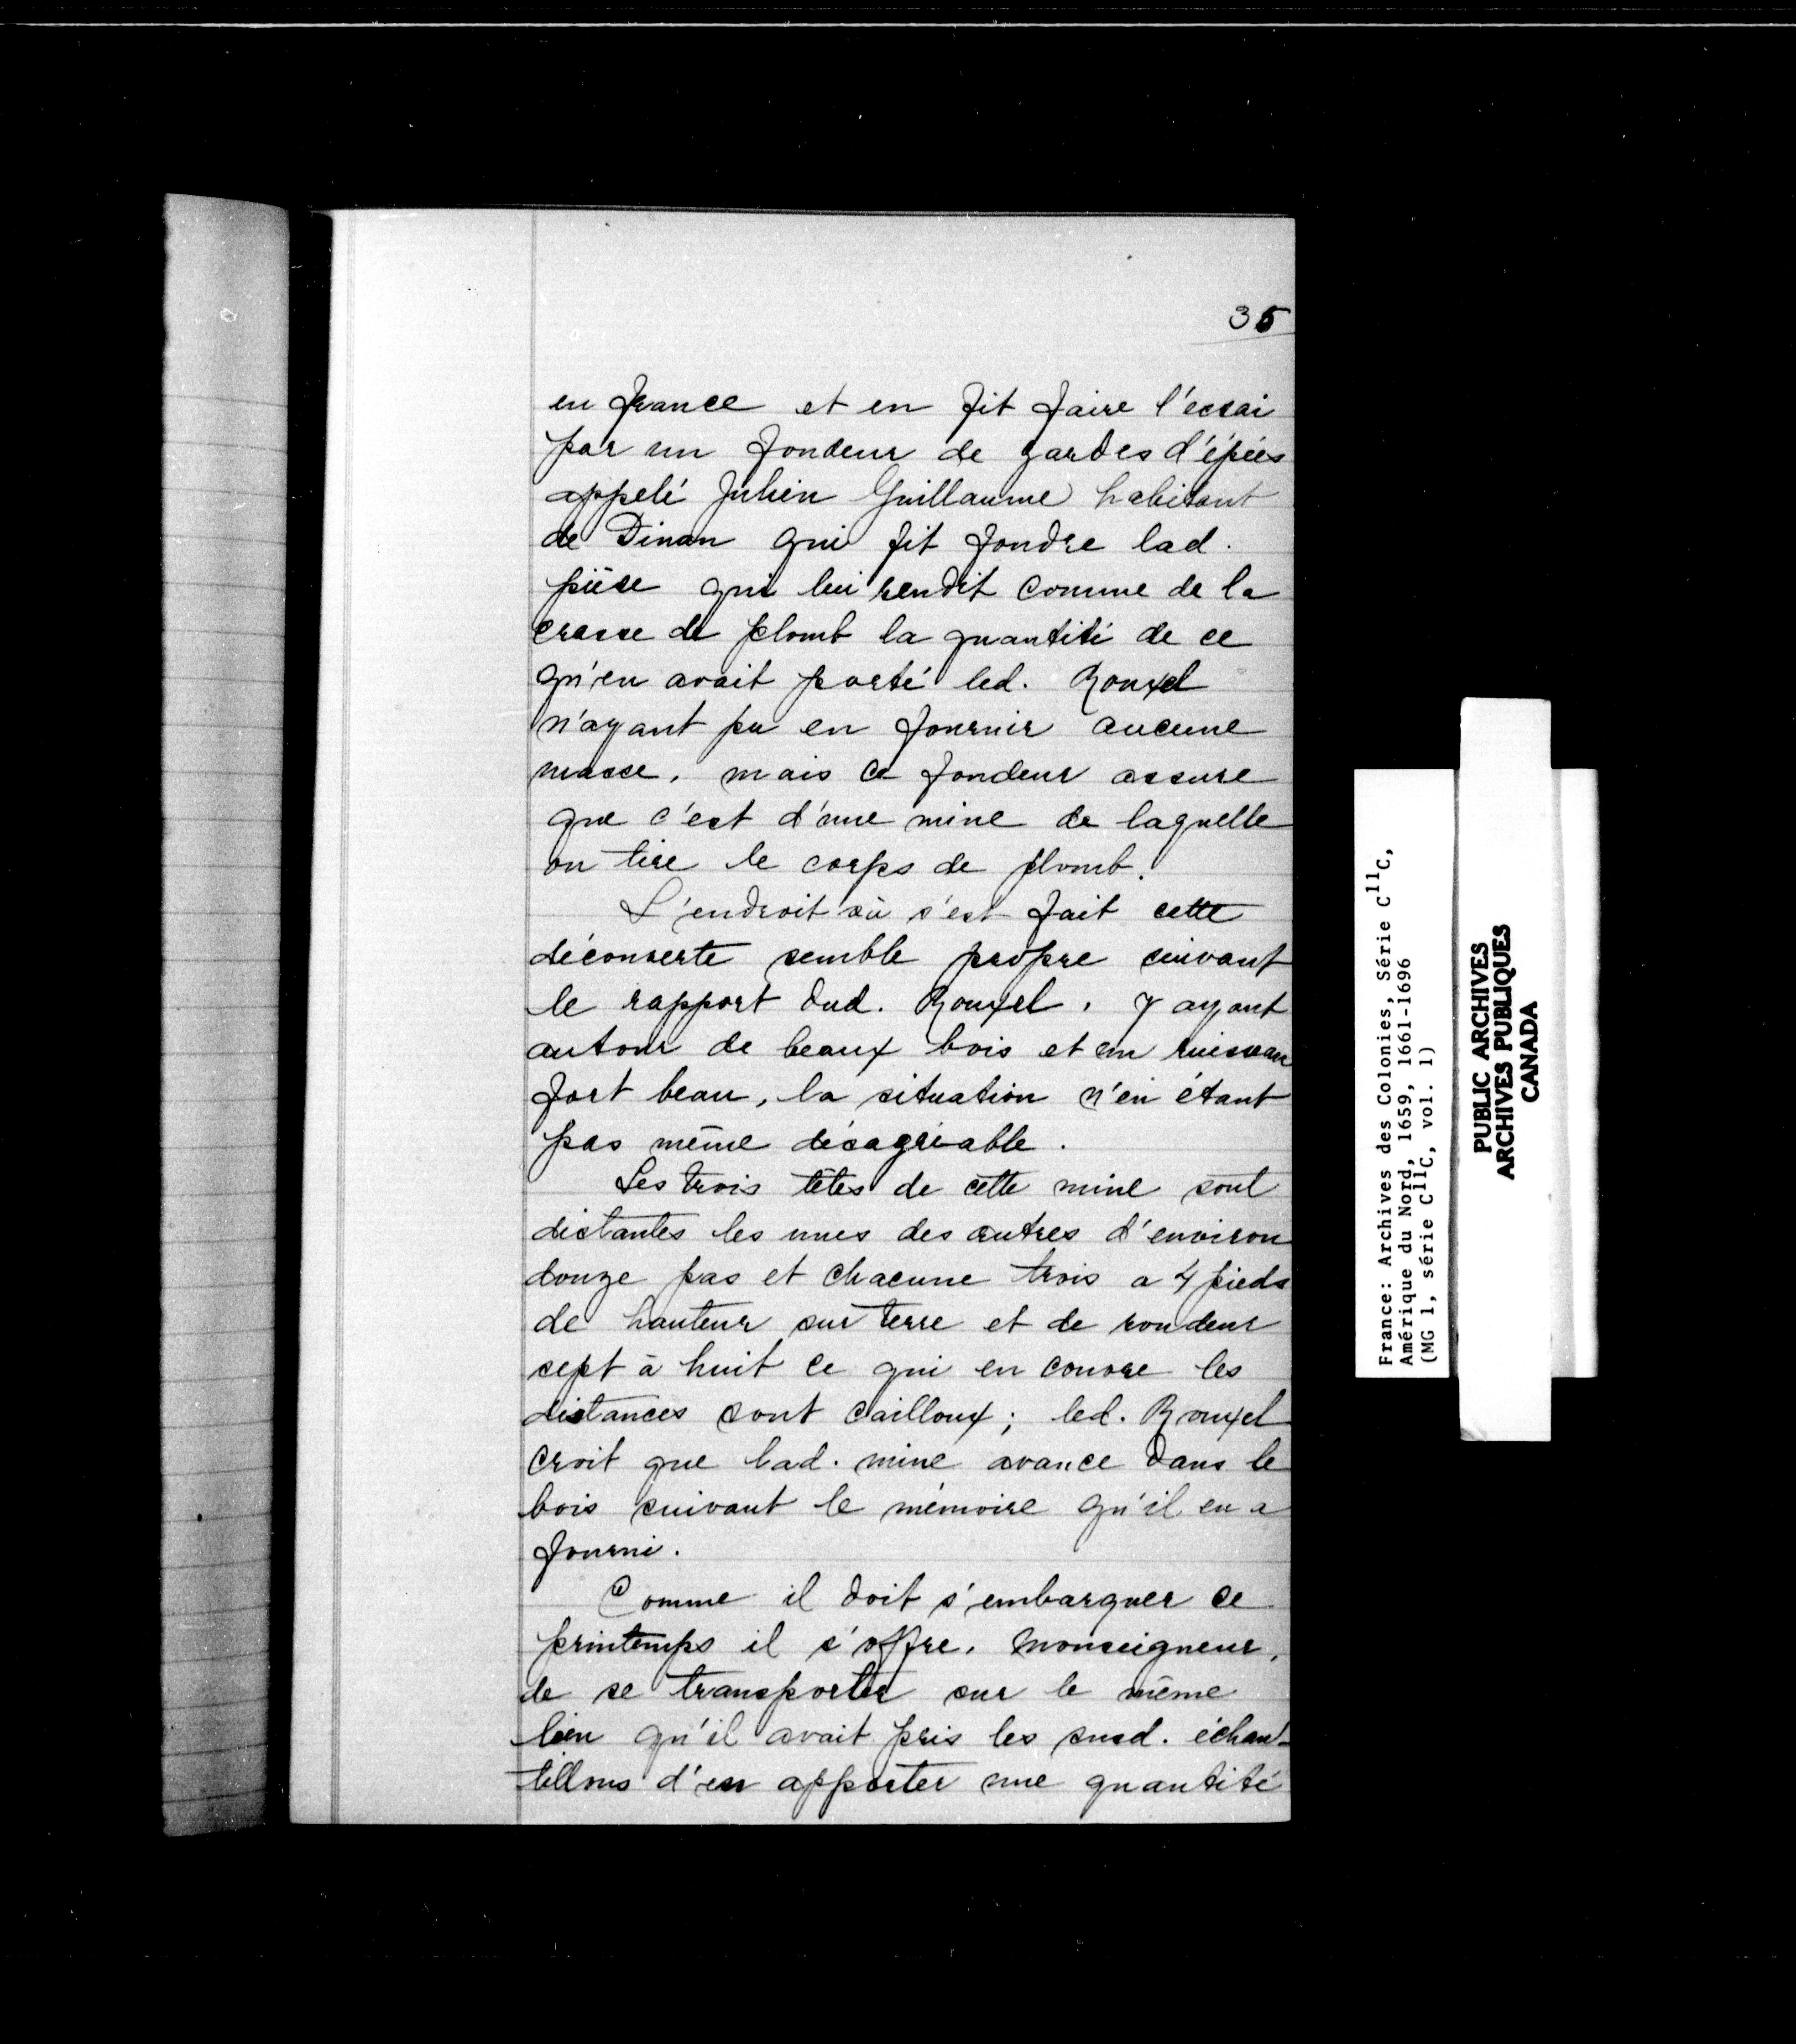 35
en france et en fit faire l'essai
par un fondeur de gardes d'épées
appelé Julien Guillaume habitant
de Dinan qui fit fondre lad.
pièce qui lui rendit comme de la
crasse de plomb la quantité de ce
qu'en avait porté led. Rouxel
n'ayant pu en fournir aucune
masse, mais ce fondeur assure
que c'est d'une mine de laquelle
on tire le corps de plomb.
L'endroit où s'est fait cette
découverte semble propre suivant
le rapport dud. Rouxel, y ayant
autour de beaux bois et un ruisseau
fort beau, la situation n'en étant
pas même désagréable.
Les trois têtes de cette mine sont
distantes les unes des autres d'environ
douze pas et chacune trois a 4 pieds
de hauteur sur terre et de rondeur
sept à huit ce qui en couvre les
distances sont cailloux; led. Rouxel
croit que lad. mine avance dans le
bois suivant le mémoire qu'il en a
fourni.
Comme il doit s'embarquer ce
printemps il s'offre, Monseigneur,
de se transporter sur le même
lieu qu'il avait pris les susd. échan-
tillons d'en apporter une quantité
France: Archives des Colonies, Série C11C,
Amérique du Nord, 1659, 1661-1696
(MG 1, série C11C, vol. 1)
PUBLIC ARCHIVES
ARCHIVES PUBLIQUES
CANADA